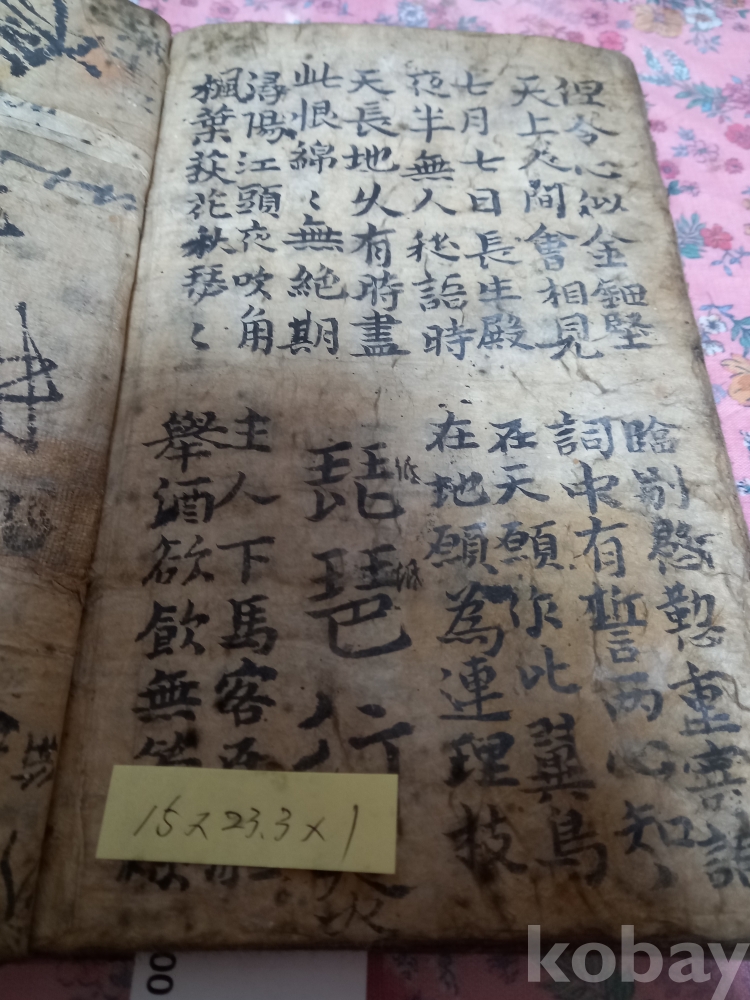 但令心似金鈿堅
天上人間會相見
臨別慇懃重寄詞
詞中有誓兩心知
七月七日長生殿
夜半無人私語時
在天願作比翼鳥
在地願為連理技
天長地久有時盡
此恨綿〻無絶期
琵琶行
潯陽江頭夜吹角
楓葉荻花秋瑟〻
主人下馬客
舉酒欲飮無
15 x 23.3 x 1
00
kobay